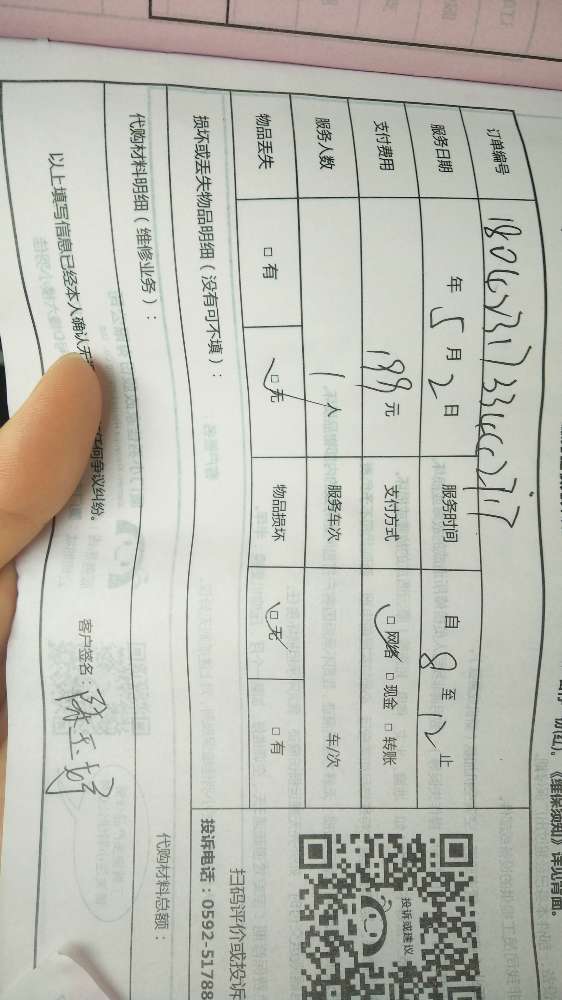 一份(红)。《维保须知》详见背面。
订单编号
服务日期 年 5 月 2 日 服务时间 自 8 至 12 止
支付费用 199 元 支付方式 □ 网络 □ 现金 □ 转账
服务人数 1 人 服务车次 车/次
物品丢失 □ 有 □ 无 物品损坏 □ 无 □ 有
投诉或建议
扫码评价或投诉
投诉电话：0592-51788
损坏或丢失物品明细（没有可不填）：
代购材料明细（维修业务）： 代购材料总额：
以上填写信息已经本人确认无 任何争议纠纷。 客户签名：